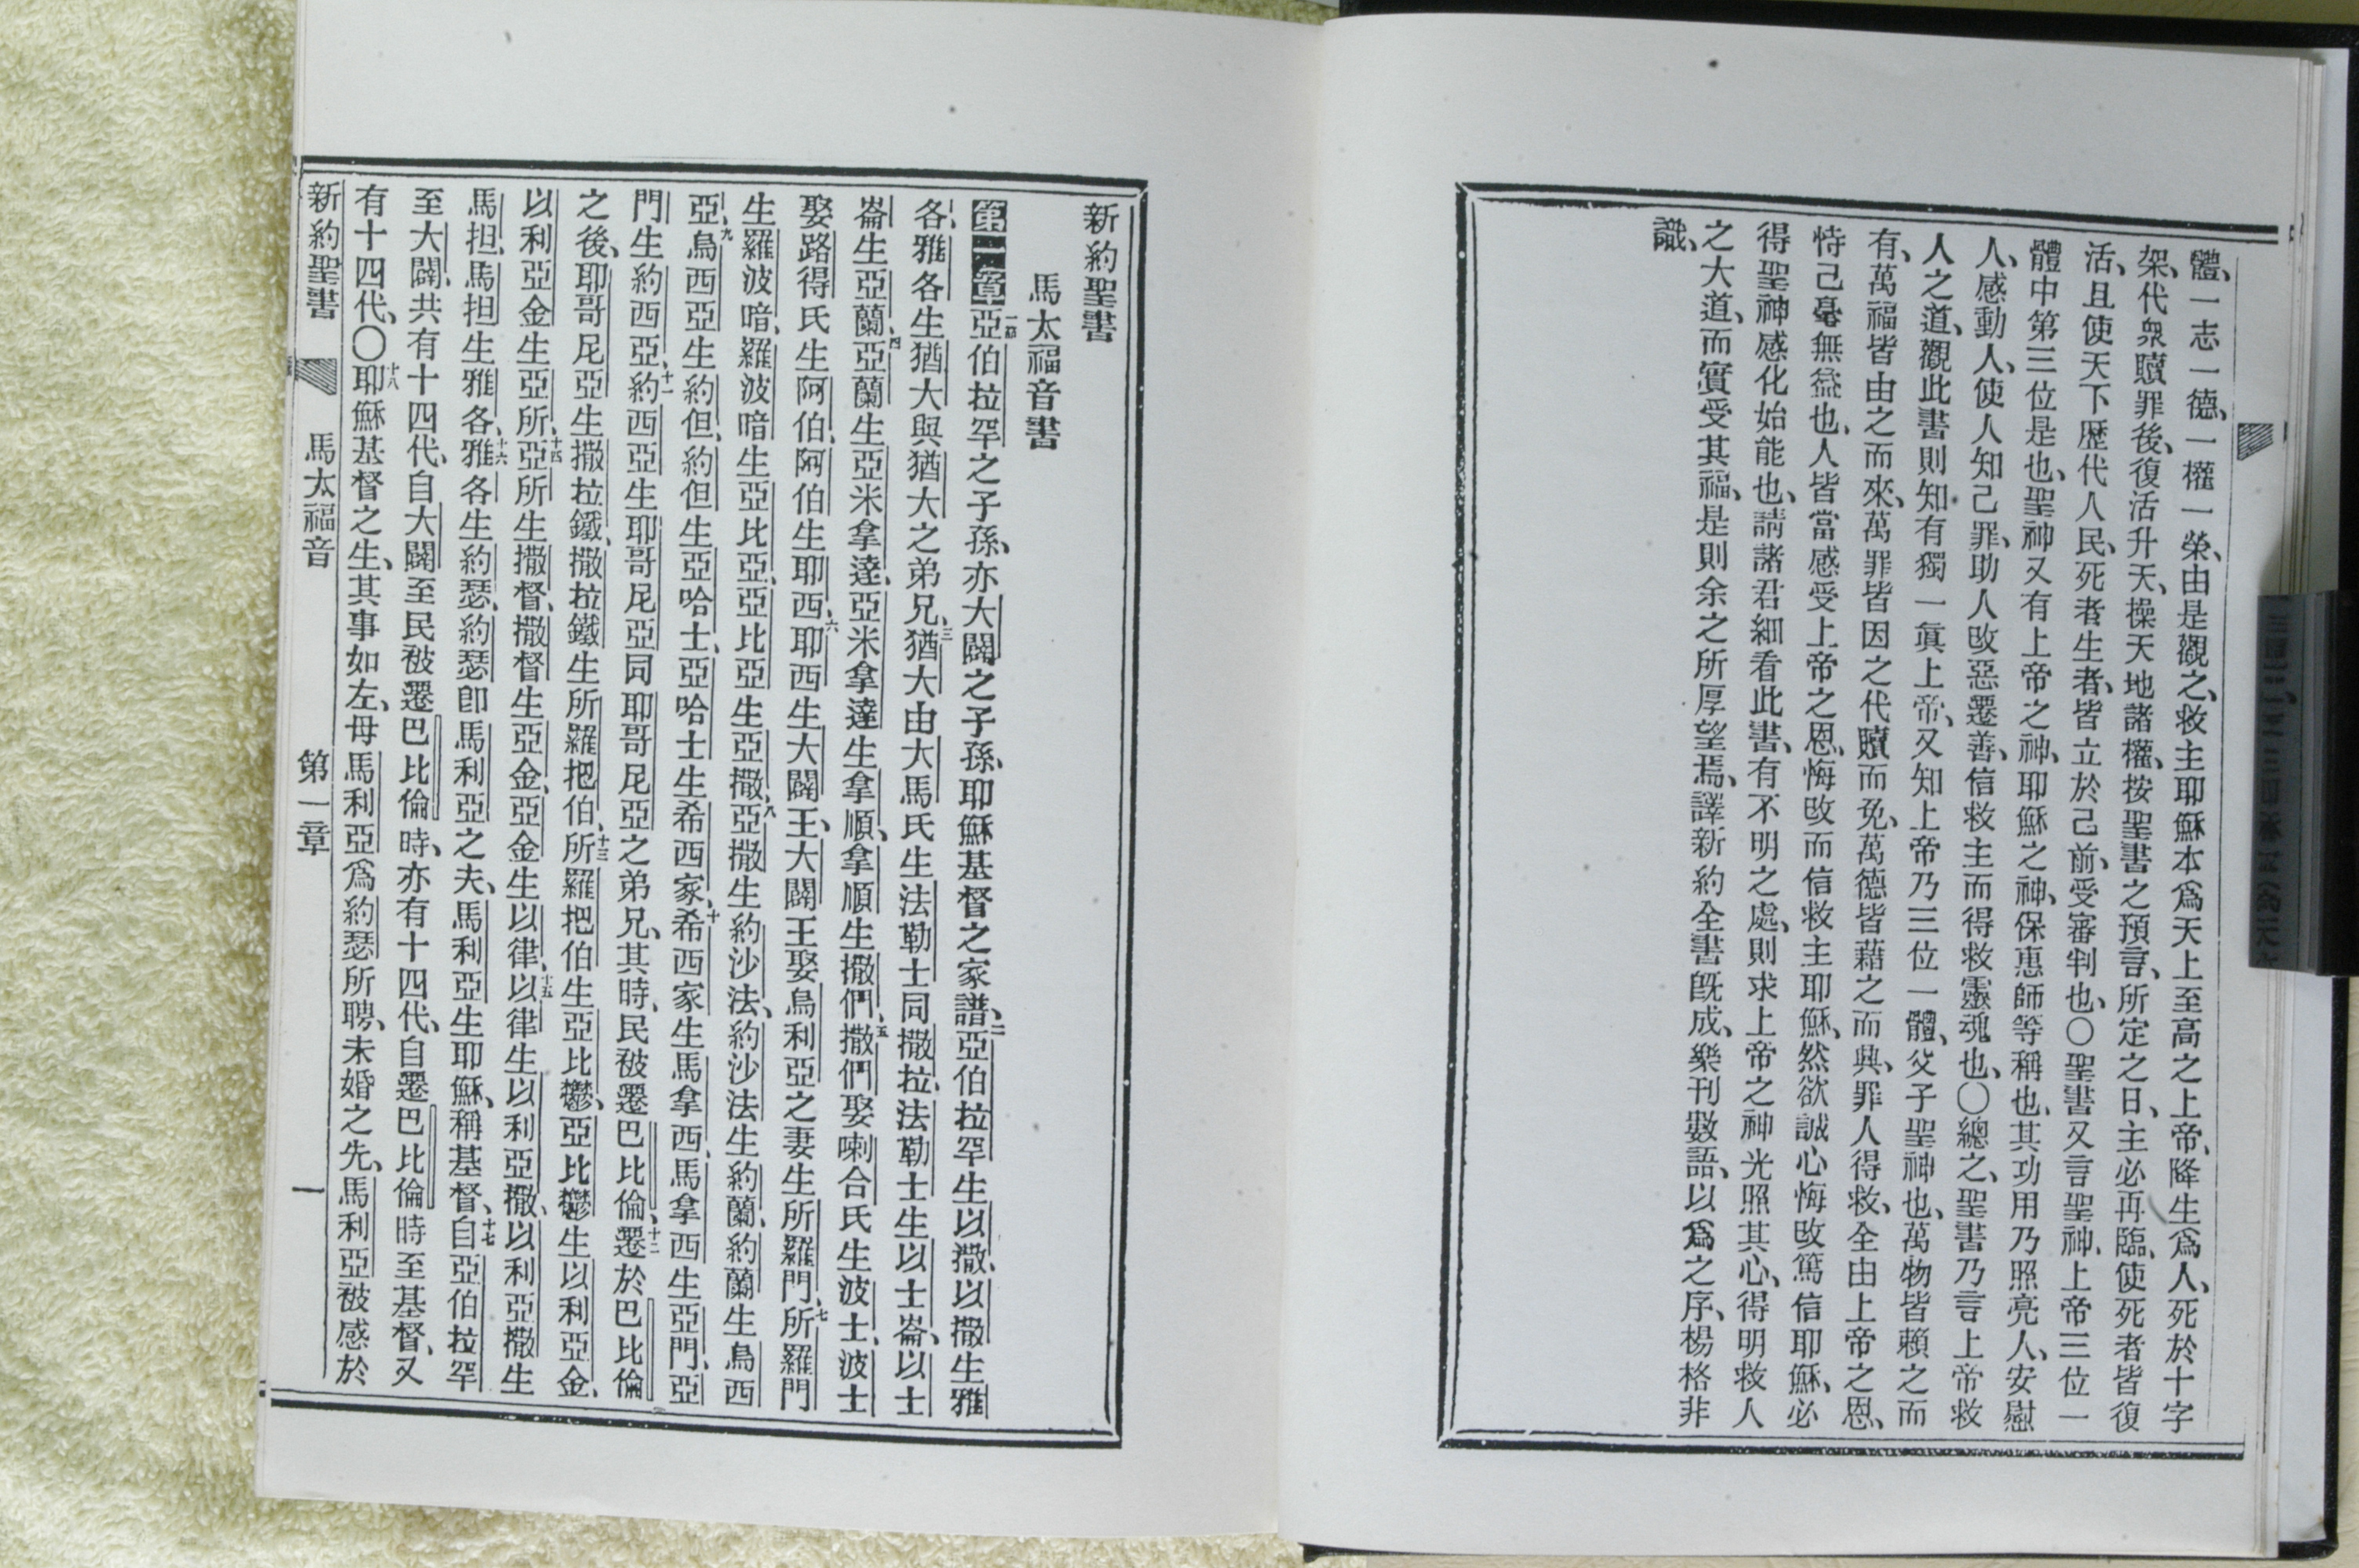 體、一志一德、一權一榮、由是觀之、救主耶穌本爲天上至高之上帝、降生爲人、死於十字
架、代衆贖罪後、復活升天、操天地諸權、按聖書之預言、所定之日、主必再臨、使死者皆復
活、且使天下歷代人民、死者生者、皆立於己前、受審判也、〇聖書又言聖神、上帝三位一
體中第三位是也、聖神又有上帝之神、耶穌之神、保惠師等稱也、其功用乃照亮人、安慰
人、感動人、使人知己罪、助人改惡遷善、信救主而得救靈魂也、〇總之、聖書乃言上帝救
人之道、觀此書則知有獨一眞上帝、又知上帝乃三位一體、父子聖神也、萬物皆賴之而
有、萬福皆由之而來、萬罪皆因之代贖而免、萬德皆藉之而興、罪人得救、全由上帝之恩、
恃己毫無益也、人皆當感受上帝之恩、悔改而信救主耶穌、然欲誠心悔改篤信耶穌、必
得聖神感化始能也、請諸君細看此書、有不明之處、則求上帝之神光照其心、得明救人
之大道、而實受其福、是則余之所厚望焉、譯新約全書旣成、樂刊數語、以爲之序、楊格非
識、
新約聖書
馬太福音書
第一章一節亞伯拉罕之子孫、亦大闢之子孫、耶穌基督之家譜、二亞伯拉罕生以撒、以撒生雅
各、雅各生猶大與猶大之弟兄、三猶大由大馬氏生法勒士同撒拉、法勒士生以士崙、以士
崙生亞蘭、四亞蘭生亞米拿達、亞米拿達生拿順、拿順生撒們、五撒們娶喇合氏生波士、波士
娶路得氏生阿伯、阿伯生耶西、六耶西生大闢王、大闢王娶烏利亞之妻生所羅門、七所羅門
生羅波暗、羅波暗生亞比亞、亞比亞生亞撒、八亞撒生約沙法、約沙法生約蘭、約蘭生烏西
亞、九烏西亞生約但、約但生亞哈士、亞哈士生希西家、十希西家生馬拿西、馬拿西生亞門、亞
門生約西亞、十一約西亞生耶哥尼亞同耶哥尼亞之弟兄、其時、民被遷巴比倫、十二遷於巴比倫
之後、耶哥尼亞生撒拉鐵、撒拉鐵生所羅把伯、十三所羅把伯生亞比鬱、亞比鬱生以利亞金、
以利亞金生亞所、十四亞所生撒督、撒督生亞金、亞金生以律、十五以律生以利亞撒、以利亞撒生
馬担、馬担生雅各、十六雅各生約瑟、約瑟卽馬利亞之夫、馬利亞生耶穌、稱基督、十七自亞伯拉罕
至大闢、共有十四代、自大闢至民被遷巴比倫時、亦有十四代、自遷巴比倫時至基督、又
有十四代、〇十八耶穌基督之生、其事如左、母馬利亞爲約瑟所聘、未婚之先、馬利亞被感於
新約聖書 馬太福音 第一章 一